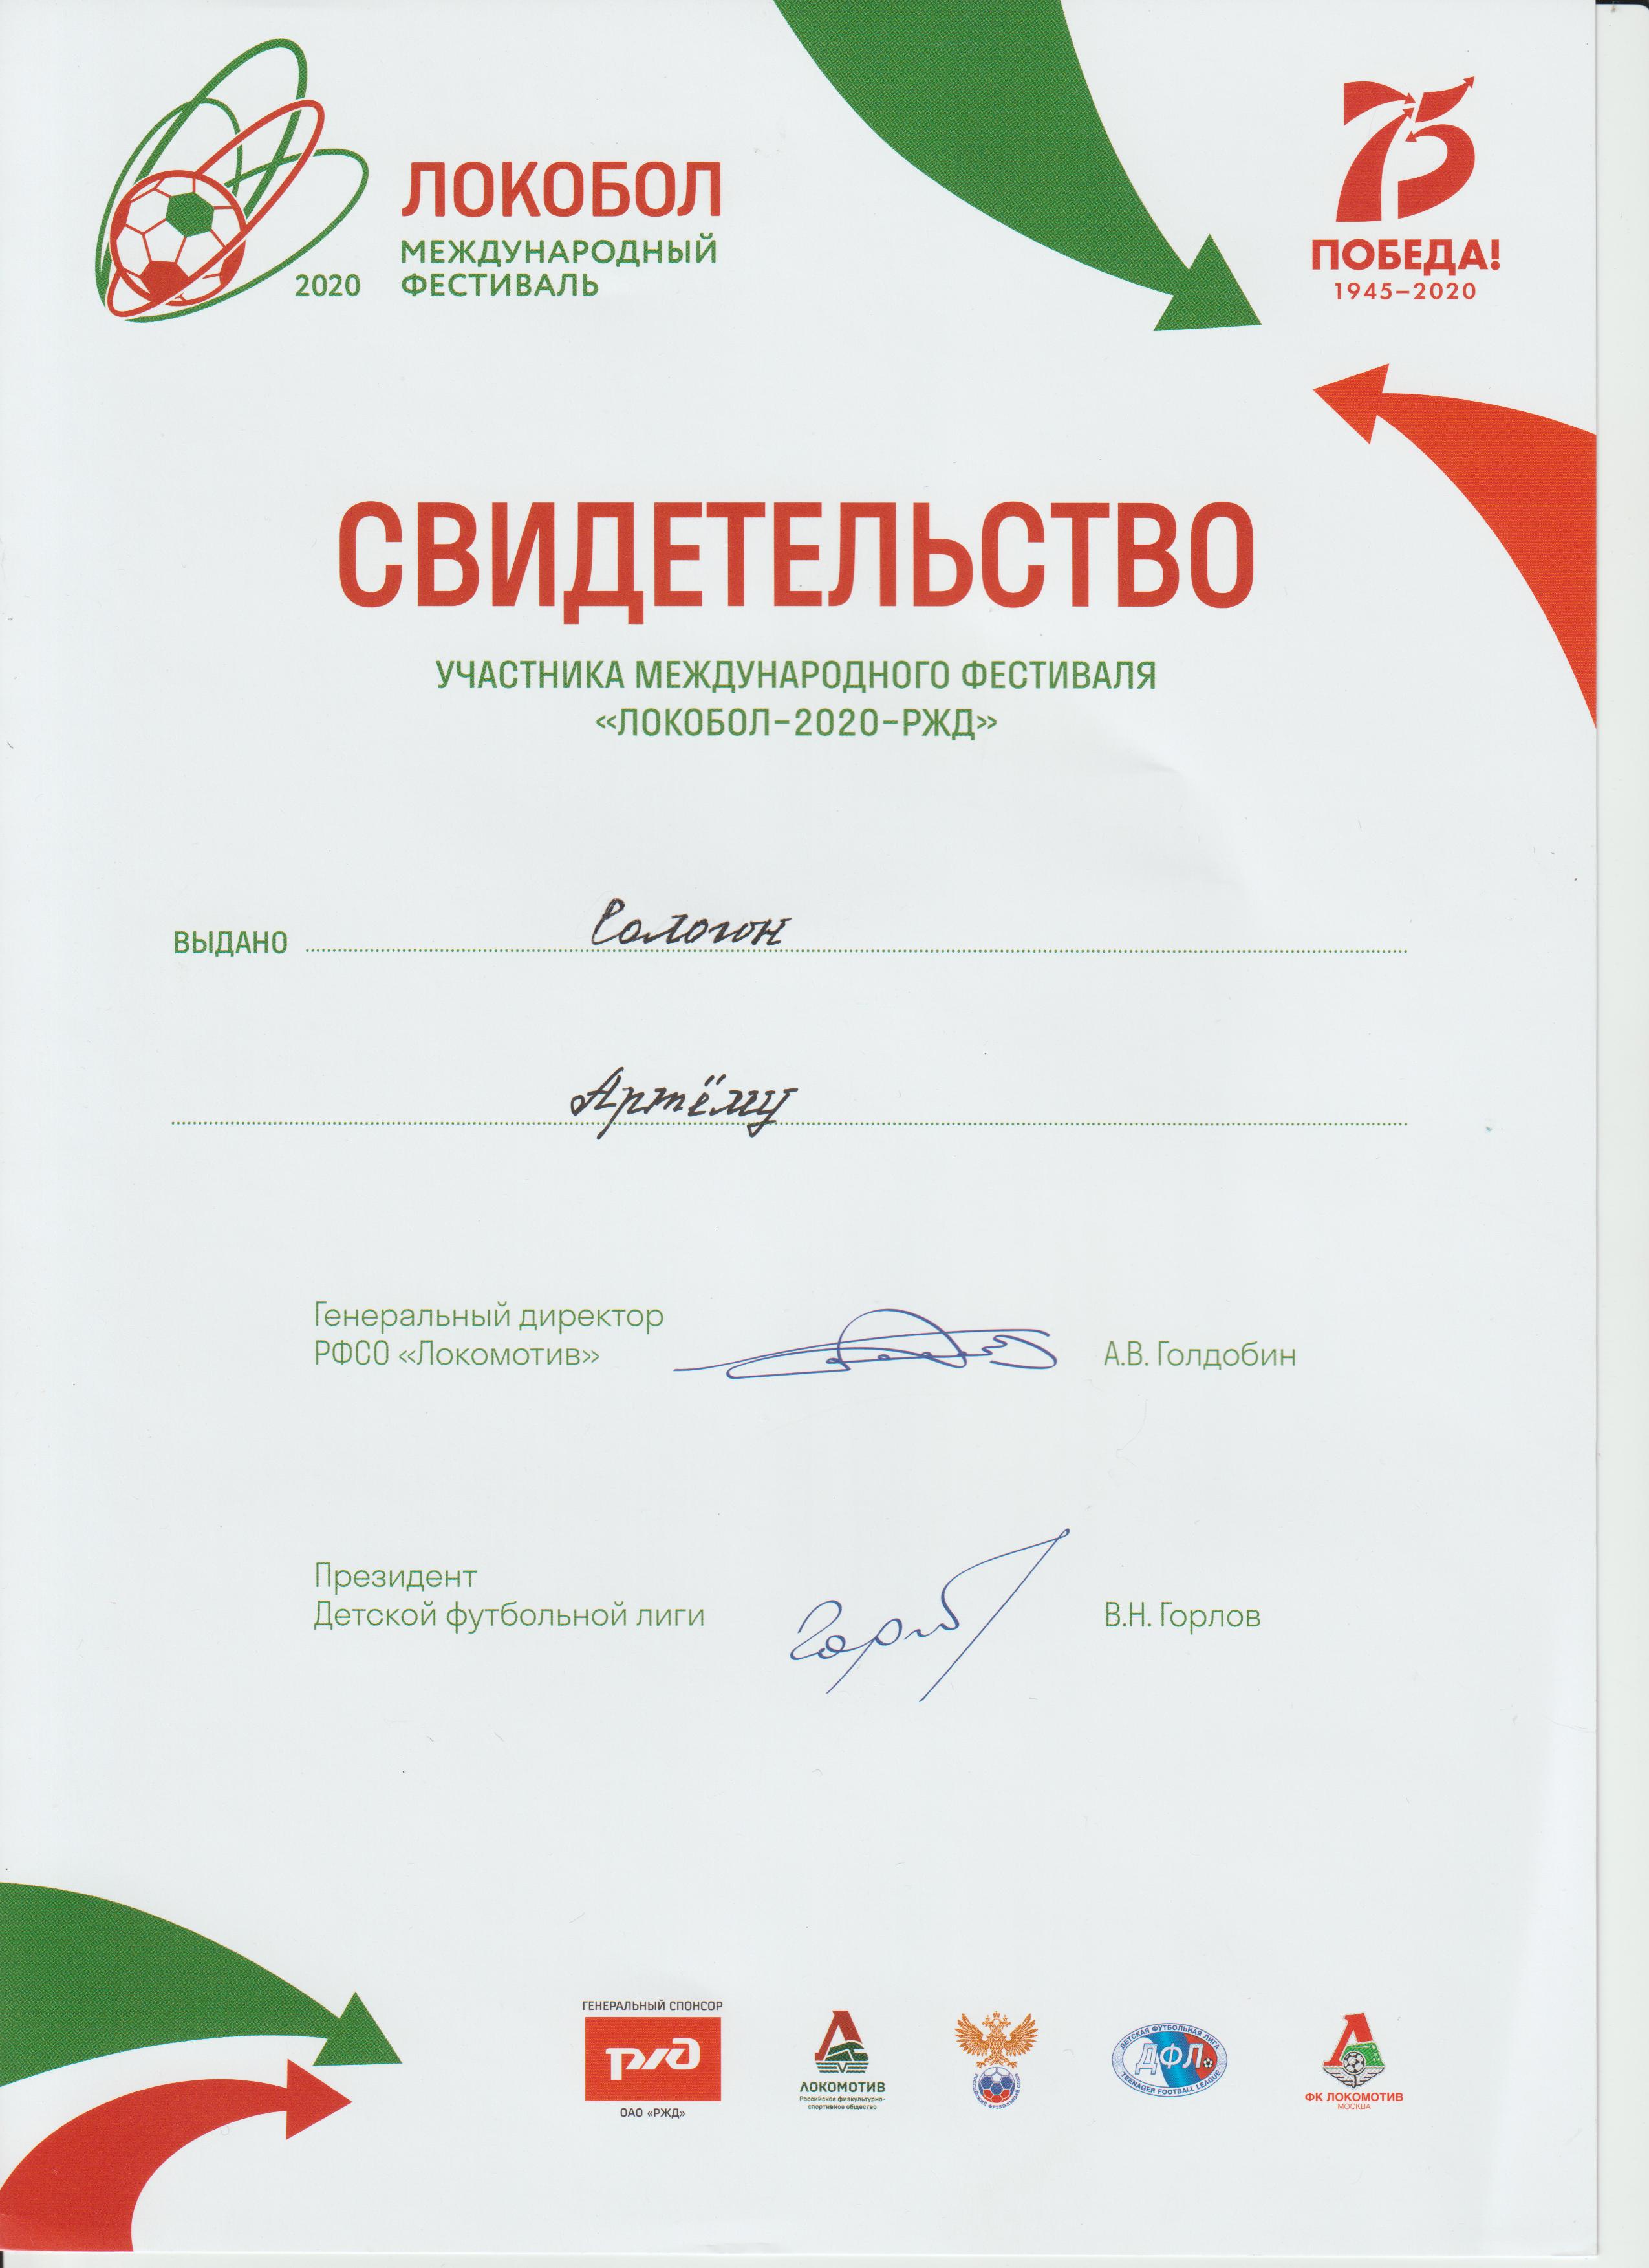 ЛОКОБОЛ
МЕЖДУНАРОДНЫЙ
2020 ФЕСТИВАЛЬ
75
ПОБЕДА!
1945–2020
СВИДЕТЕЛЬСТВО
УЧАСТНИКА МЕЖДУНАРОДНОГО ФЕСТИВАЛЯ
«ЛОКОБОЛ-2020-РЖД»
ВЫДАНО Сологон
Артёму
Генеральный директор
РФСО «Локомотив» А.В. Голдобин
Президент
Детской футбольной лиги В.Н. Горлов
ГЕНЕРАЛЬНЫЙ СПОНСОР
ржд
ОАО «РЖД»
ЛОКОМОТИВ
Российское физкультурно-
спортивное общество
РОССИЙСКИЙ ФУТБОЛЬНЫЙ СОЮЗ
ДЕТСКАЯ ФУТБОЛЬНАЯ ЛИГА
ДФЛ
TEENAGER FOOTBALL LEAGUE
ФК ЛОКОМОТИВ
МОСКВА